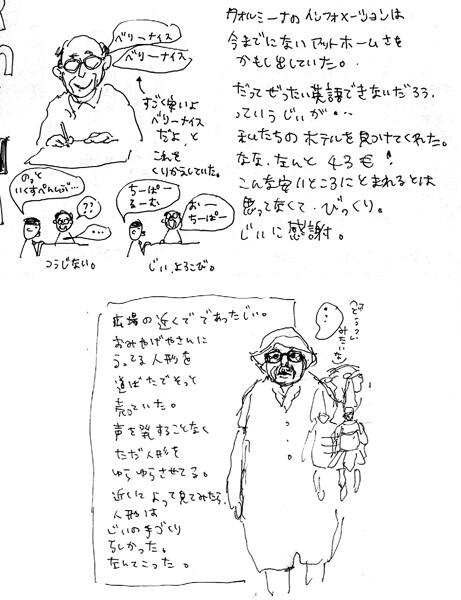 ベリーナイス
ベリーナイス
すごく安いよ
ベリーナイス
だよ、と
これを
くりかえしていた。
のっと
いくすぺんしぶ…
??
…
つうじない。
ちーぱー
るーむ
おー
ちーぱー
じい、よろこび。
タオルミーナのインフォメーションは
今までにないアットホームさを
かもし出していた。
だってぜったい英語できないだろう
っていうじいが…
私たちのホテルを見つけてくれた。
なな、なんと 43€!
こんな安いところにとまれるとは
思ってなくて、びっくり。
じいに感謝。
広場の近くででであったじい。
おみやげやさんに
うってる人形を
道ばたでそっと
売っていた。
声を発することなく
ただ人形を
ゆらゆらさせてる。
近くによって見てみたら、
人形は
じいの手づくり
らしかった。
なんてこった。
みたいな